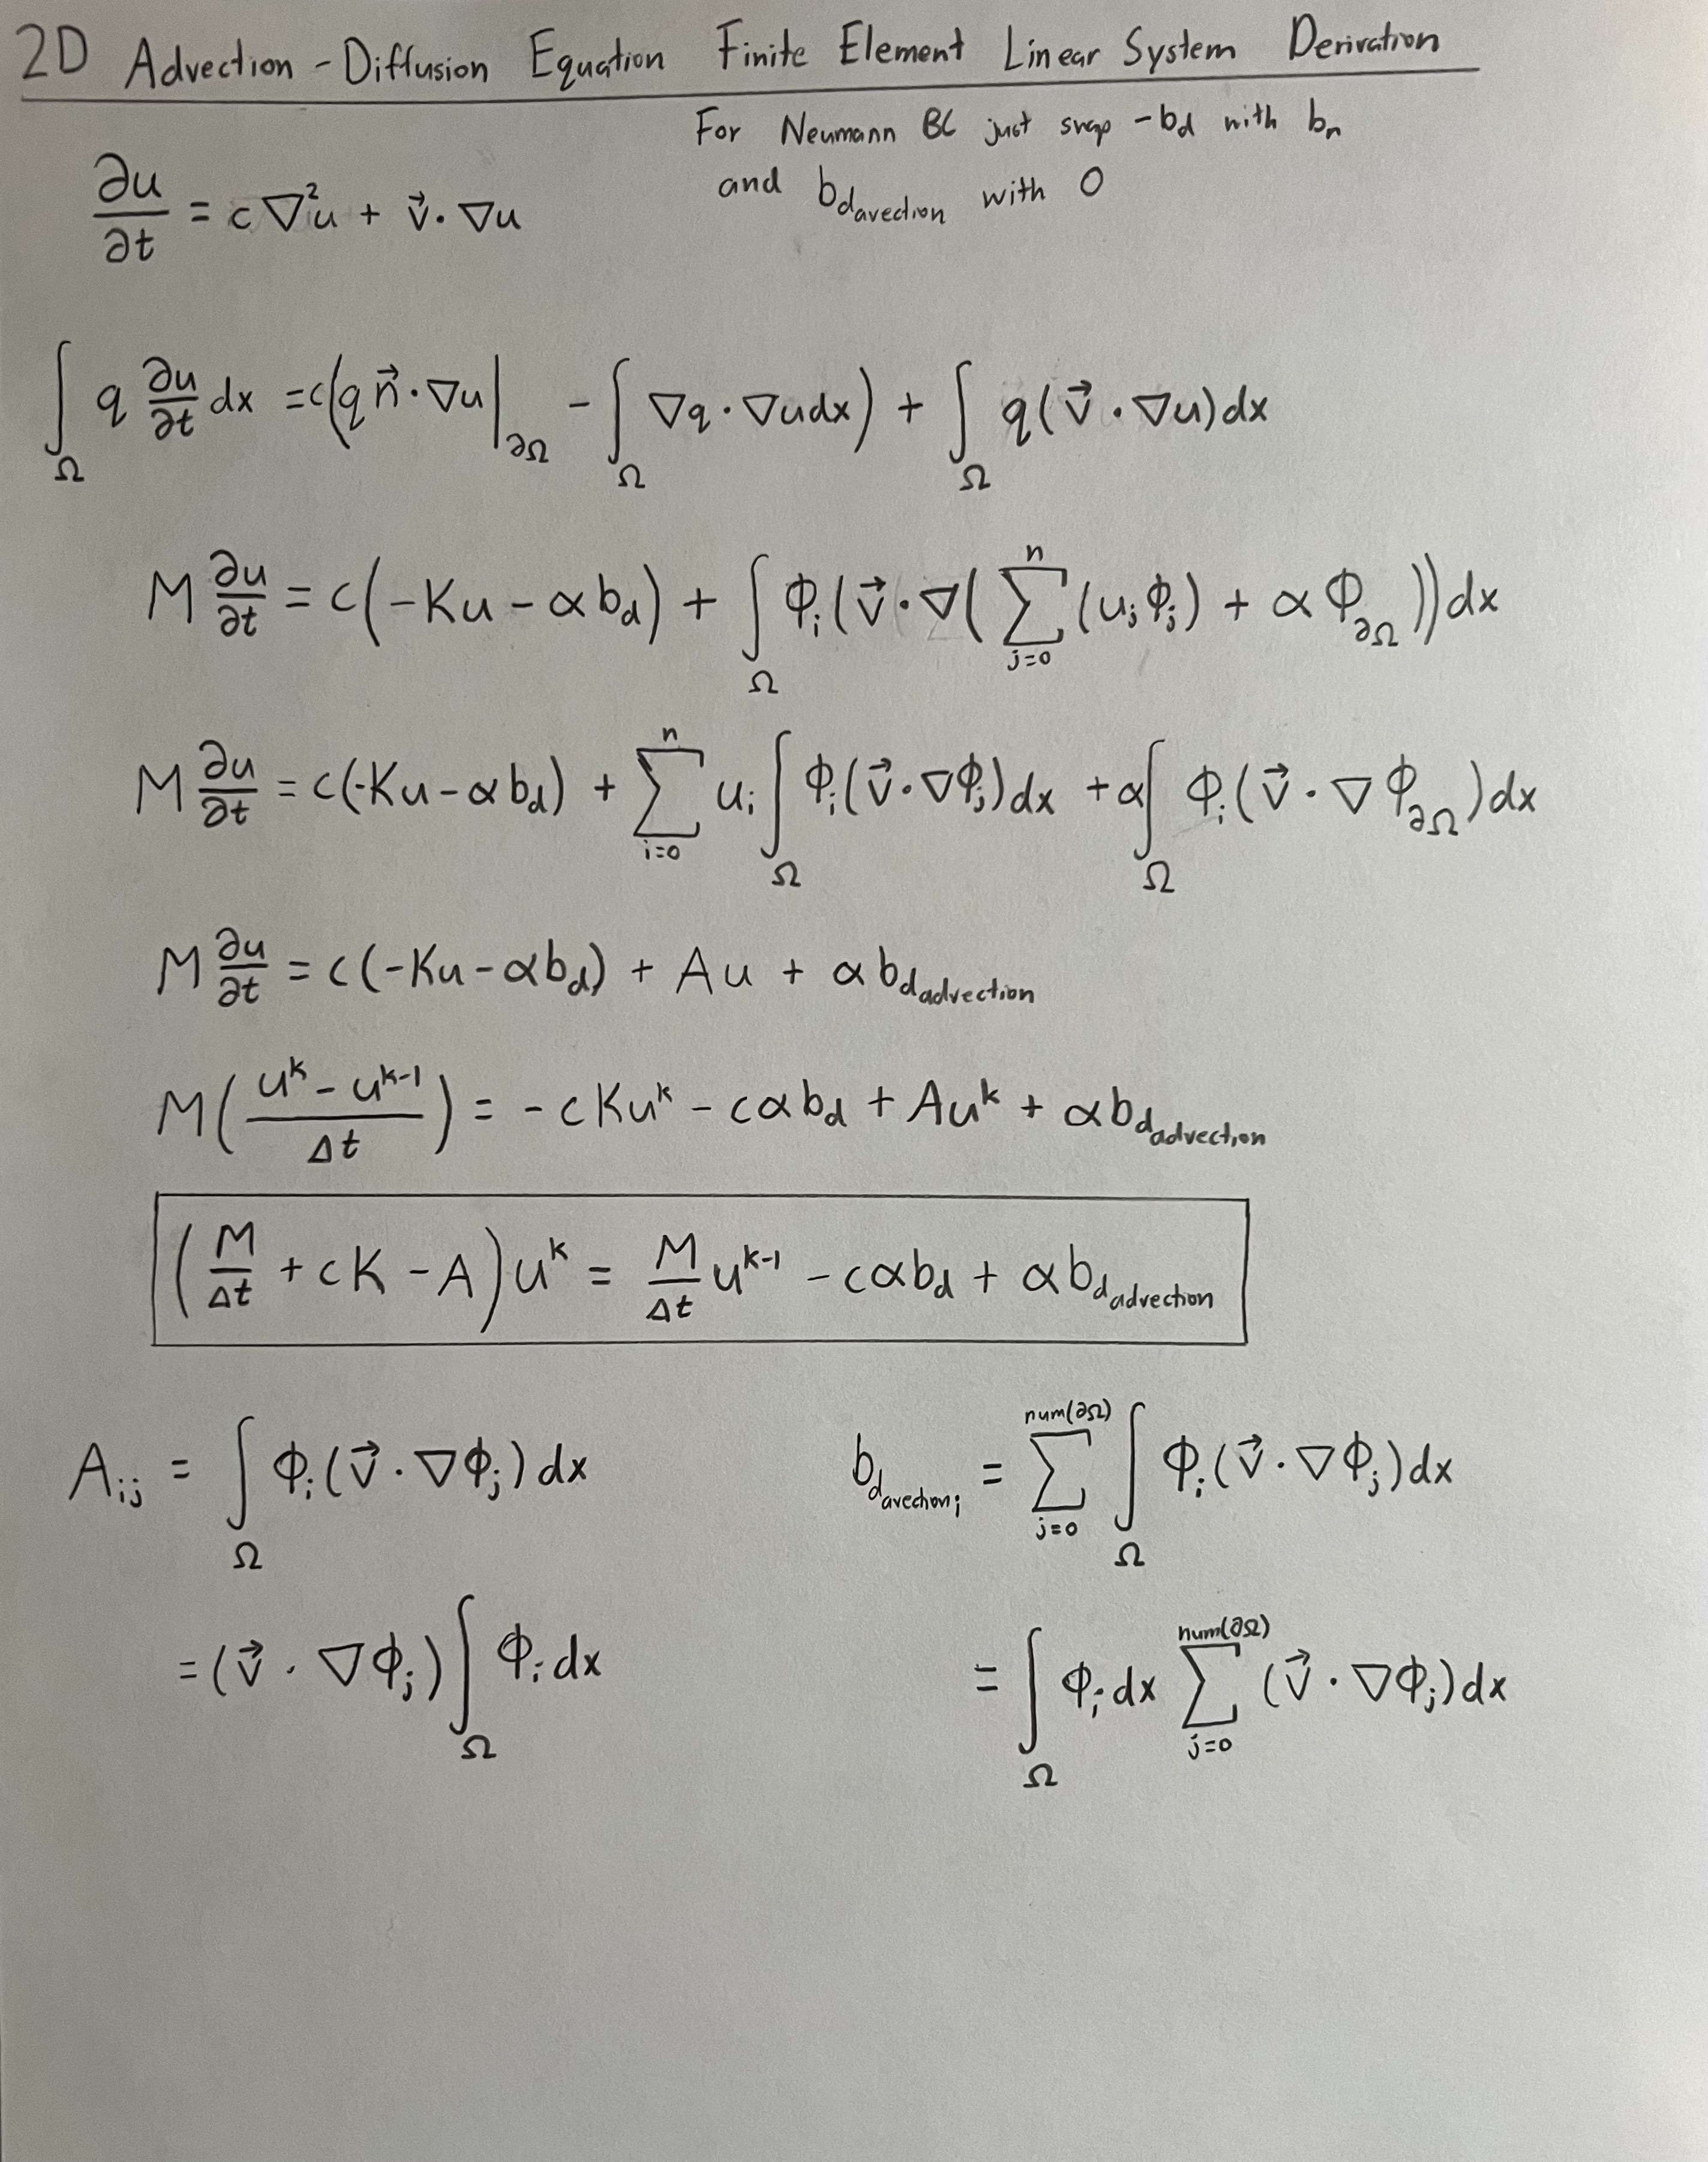 2D Advection - Diffusion Equation Finite Element Linear System Derivation
For Neumann BC just swap -b_d with b_n
and b_{d_{avection}} with 0
∂u/∂t = c∇²u + v⃗·∇u
∫_Ω q ∂u/∂t dx = c(q n⃗·∇u|_{∂Ω} - ∫_Ω ∇q·∇u dx) + ∫_Ω q(v⃗·∇u)dx
M ∂u/∂t = c(-Ku - αb_d) + ∫_Ω ϕ_i(v⃗·∇(∑_{j=0}^{n}(u_jϕ_j) + αϕ_{∂Ω}))dx
M ∂u/∂t = c(-Ku - αb_d) + ∑_{i=0}^{n} u_i ∫_Ω ϕ_i(v⃗·∇ϕ_j)dx + α∫_Ω ϕ_i(v⃗·∇ϕ_{∂Ω})dx
M ∂u/∂t = c(-Ku - αb_d) + Au + αb_{d_{advection}}
M((u^k - u^{k-1})/Δt) = -cKu^k - cαb_d + Au^k + αb_{d_{advection}}
(M/Δt + cK - A)u^k = M/Δt u^{k-1} - cαb_d + αb_{d_{advection}}
A_{ij} = ∫_Ω ϕ_i(v⃗·∇ϕ_j)dx
= (v⃗·∇ϕ_j)∫_Ω ϕ_i dx
b_{d_{avection}i} = ∑_{j=0}^{num(∂Ω)} ∫_Ω ϕ_i(v⃗·∇ϕ_j)dx
= ∫_Ω ϕ_i dx ∑_{j=0}^{num(∂Ω)} (v⃗·∇ϕ_j)dx